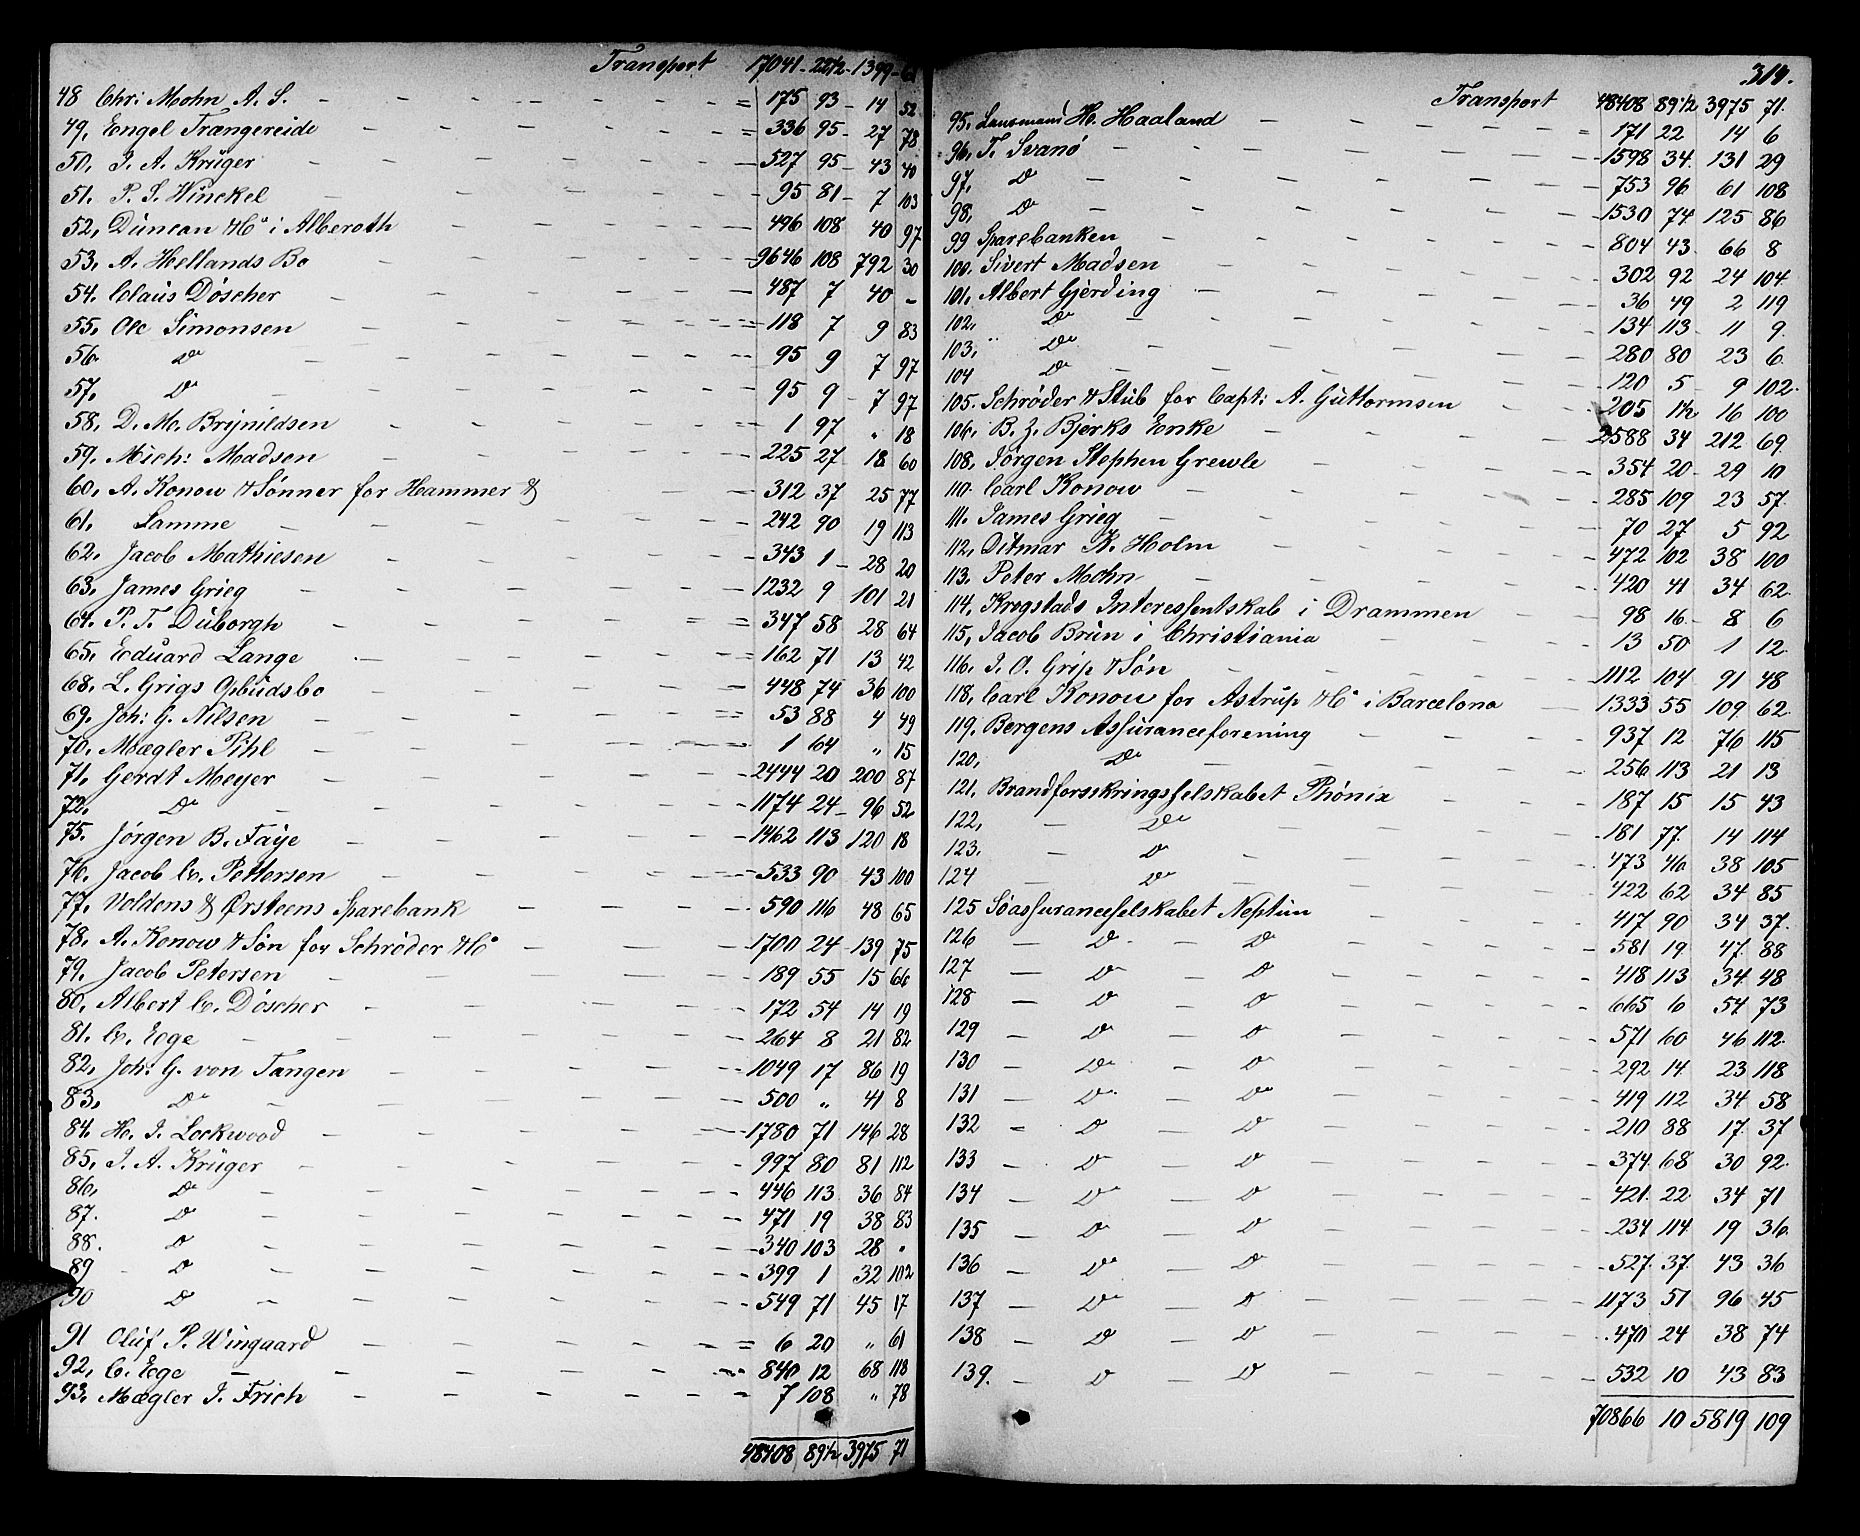 Transport 17041 - 22½ - 1399 - 61
48 Chr: Mohn A. S. 175 93 14 52
49, Engel Trangereide 336 95 27 78
50, J. A. Krüger 527 95 43 40
51. P. S. Winckel 95 81 7 103
52, Düncan & Co i Alberoth 496 108 40 97
53. A. Hellands Bo 9646 108 792 30
54. Claüs Döscher 487 7 40 -
55. Ole Simonsen 118 7 9 83
56. Do 95 9 7 97
57. Do 95 9 7 97
58. D. M. Brynildsen 1 97 " 18
59. Mich: Madsen 225 27 18 60
60, A. Konow & Sønner for Hammer & 312 37 25 77
61. Lamme 242 90 19 113
62. Jacob Mathiesen 343 1 28 20
63. James Grieg 1232 9 101 21
64. P. T. Düborgh 347 58 28 64
65. Edüard Lange 162 71 13 42
68. L. Grigs Opbüdsbo 448 74 36 100
69. Joh: G. Nilsen 53 88 4 49
70. Mægler Pihl 1 64 " 15
71. Gerdt Meyer 2444 20 200 87
72. Do 1174 24 96 52
75. Jörgen B. Faye 1462 113 120 18
76. Jacob C. Pettersen 533 90 43 100
77. Voldens & Ørsteens Sparebank 590 116 48 65
78. A. Konow & Søn for Schrøder & Co 1700 24 139 75
79. Jacob Petersen 189 55 15 66
80. Albert C. Döscher 172 54 14 19
81. C. Ege 264 8 21 82
82. Joh: G. von Tangen 1049 17 86 19
83. Do 500 " 41 8
84. H. J. Lockwood 1780 71 146 28
85. J. A. Krüger 997 80 81 112
86. Do 446 113 36 84
87. Do 471 19 38 83
88. Do 340 103 28 "
89 Do 399 1 32 102
90 Do 549 71 45 17
91 Olüf P. Wingaard 6 20 " 61
92, C. Ege 840 12 68 118
93. Mægler J. Frich 7 108 " 78
48408 89½ 3975 71
314.
Transport 48408 89½ 3975 71.
95. Lensmand H. Haaland 171 22 14 6
96. T. Svanø 1598 34 131 29
97. Do 753 96 61 108
98. Do 1530 74 125 86
99 Sparebanken 804 43 66 8
100. Sivert Madsen 302 92 24 104
101. Albert Gjerding 36 49 2 119
102. Do 134 113 11 9.
103. " Do 280 80 23 6.
104 Do 120 5 9 102.
105. Schrøder & Stub for Capt: A. Güttormsen 205 1½ 16 100
106. B. Z. Bjerks Enke 2588 34 212 69
108. Jörgen Stephen Grewle 354 20 29 10
110. Carl Konow 285 109 23 57.
111. James Grieg 70 27 5 92
112. Ditmar K. Holm 472 102 38 100
113. Peter Mohn 420 41 34 62.
114. Krogstads Interessentskab i Drammen 98 16 8 6
115, Jacob Brün i Christiania 13 50 1 12.
116. J. O. Grip & Søn 1112 104 91 48
118. Carl Konow for Astrup & Co i Barcelona 1333 55 109 62.
119. Bergens Assuranceforening 937 12 76 115
120. Do 256 113 21 13
121. Brandforsikringsselskabet Phønix 187 15 15 43
122. Do 181 77. 14 114
123. Do 473 46 38 105
124 Do 422 62 34 85
125 Søassuranceselskabet Neptün 417 90 34 37.
126 Do Do 581 19 47. 88
127 Do Do 418 113 34 48
128 Do Do 665 6 54 73
129 Do Do 571 60 46 112.
130 Do Do 292 14. 23 118
131 Do Do 419 112 34 58
132 Do Do 210 88 17. 37
133 Do Do 374 68 30 92.
134 Do Do 421. 22 34 71
135 Do Do 234 114 19 36
136 Do Do 527. 37. 43 36
137 Do Do 1173 51 96 45
138 Do Do 470 24 38 74
139. Do Do 532 10 43 83
70866 10 5819 109